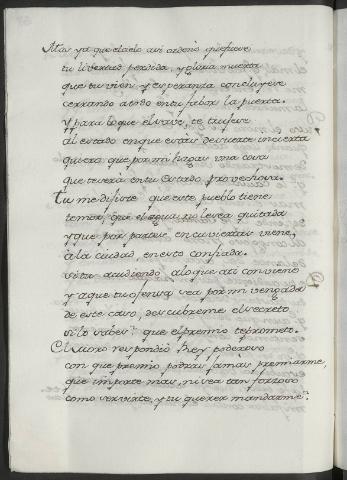 Mas ya que el cielo asi ordenò que fuese
tu livertad perdida, y gloria muerta
que tu vien, y esperanza concluyese
cerrando a todo en tu fabor la puerta.
Y para lo que el save, te trujese
al estado en que estàs de suerte incierta
quiero que por mi hagas una cosa
que te serà en tu estado provechosa.
Tu me dijiste que este pueblo tiene
temor, que el agua no le sea quitada
y que por partes encuviertas viene,
à la ciudad, en esto confiada.
si tu acudiendo a lo que así conviene
y a que tu ofensa sea por mi vengada
de este caso, descubreme el secreto
si lo sabes? que el premio te prometo.
El moro respondiò Rey poderoso
con que premio podras jamas premiarme,
que importe mas, ni sea tan forzoso
como servirte, y tu querer mandarme?